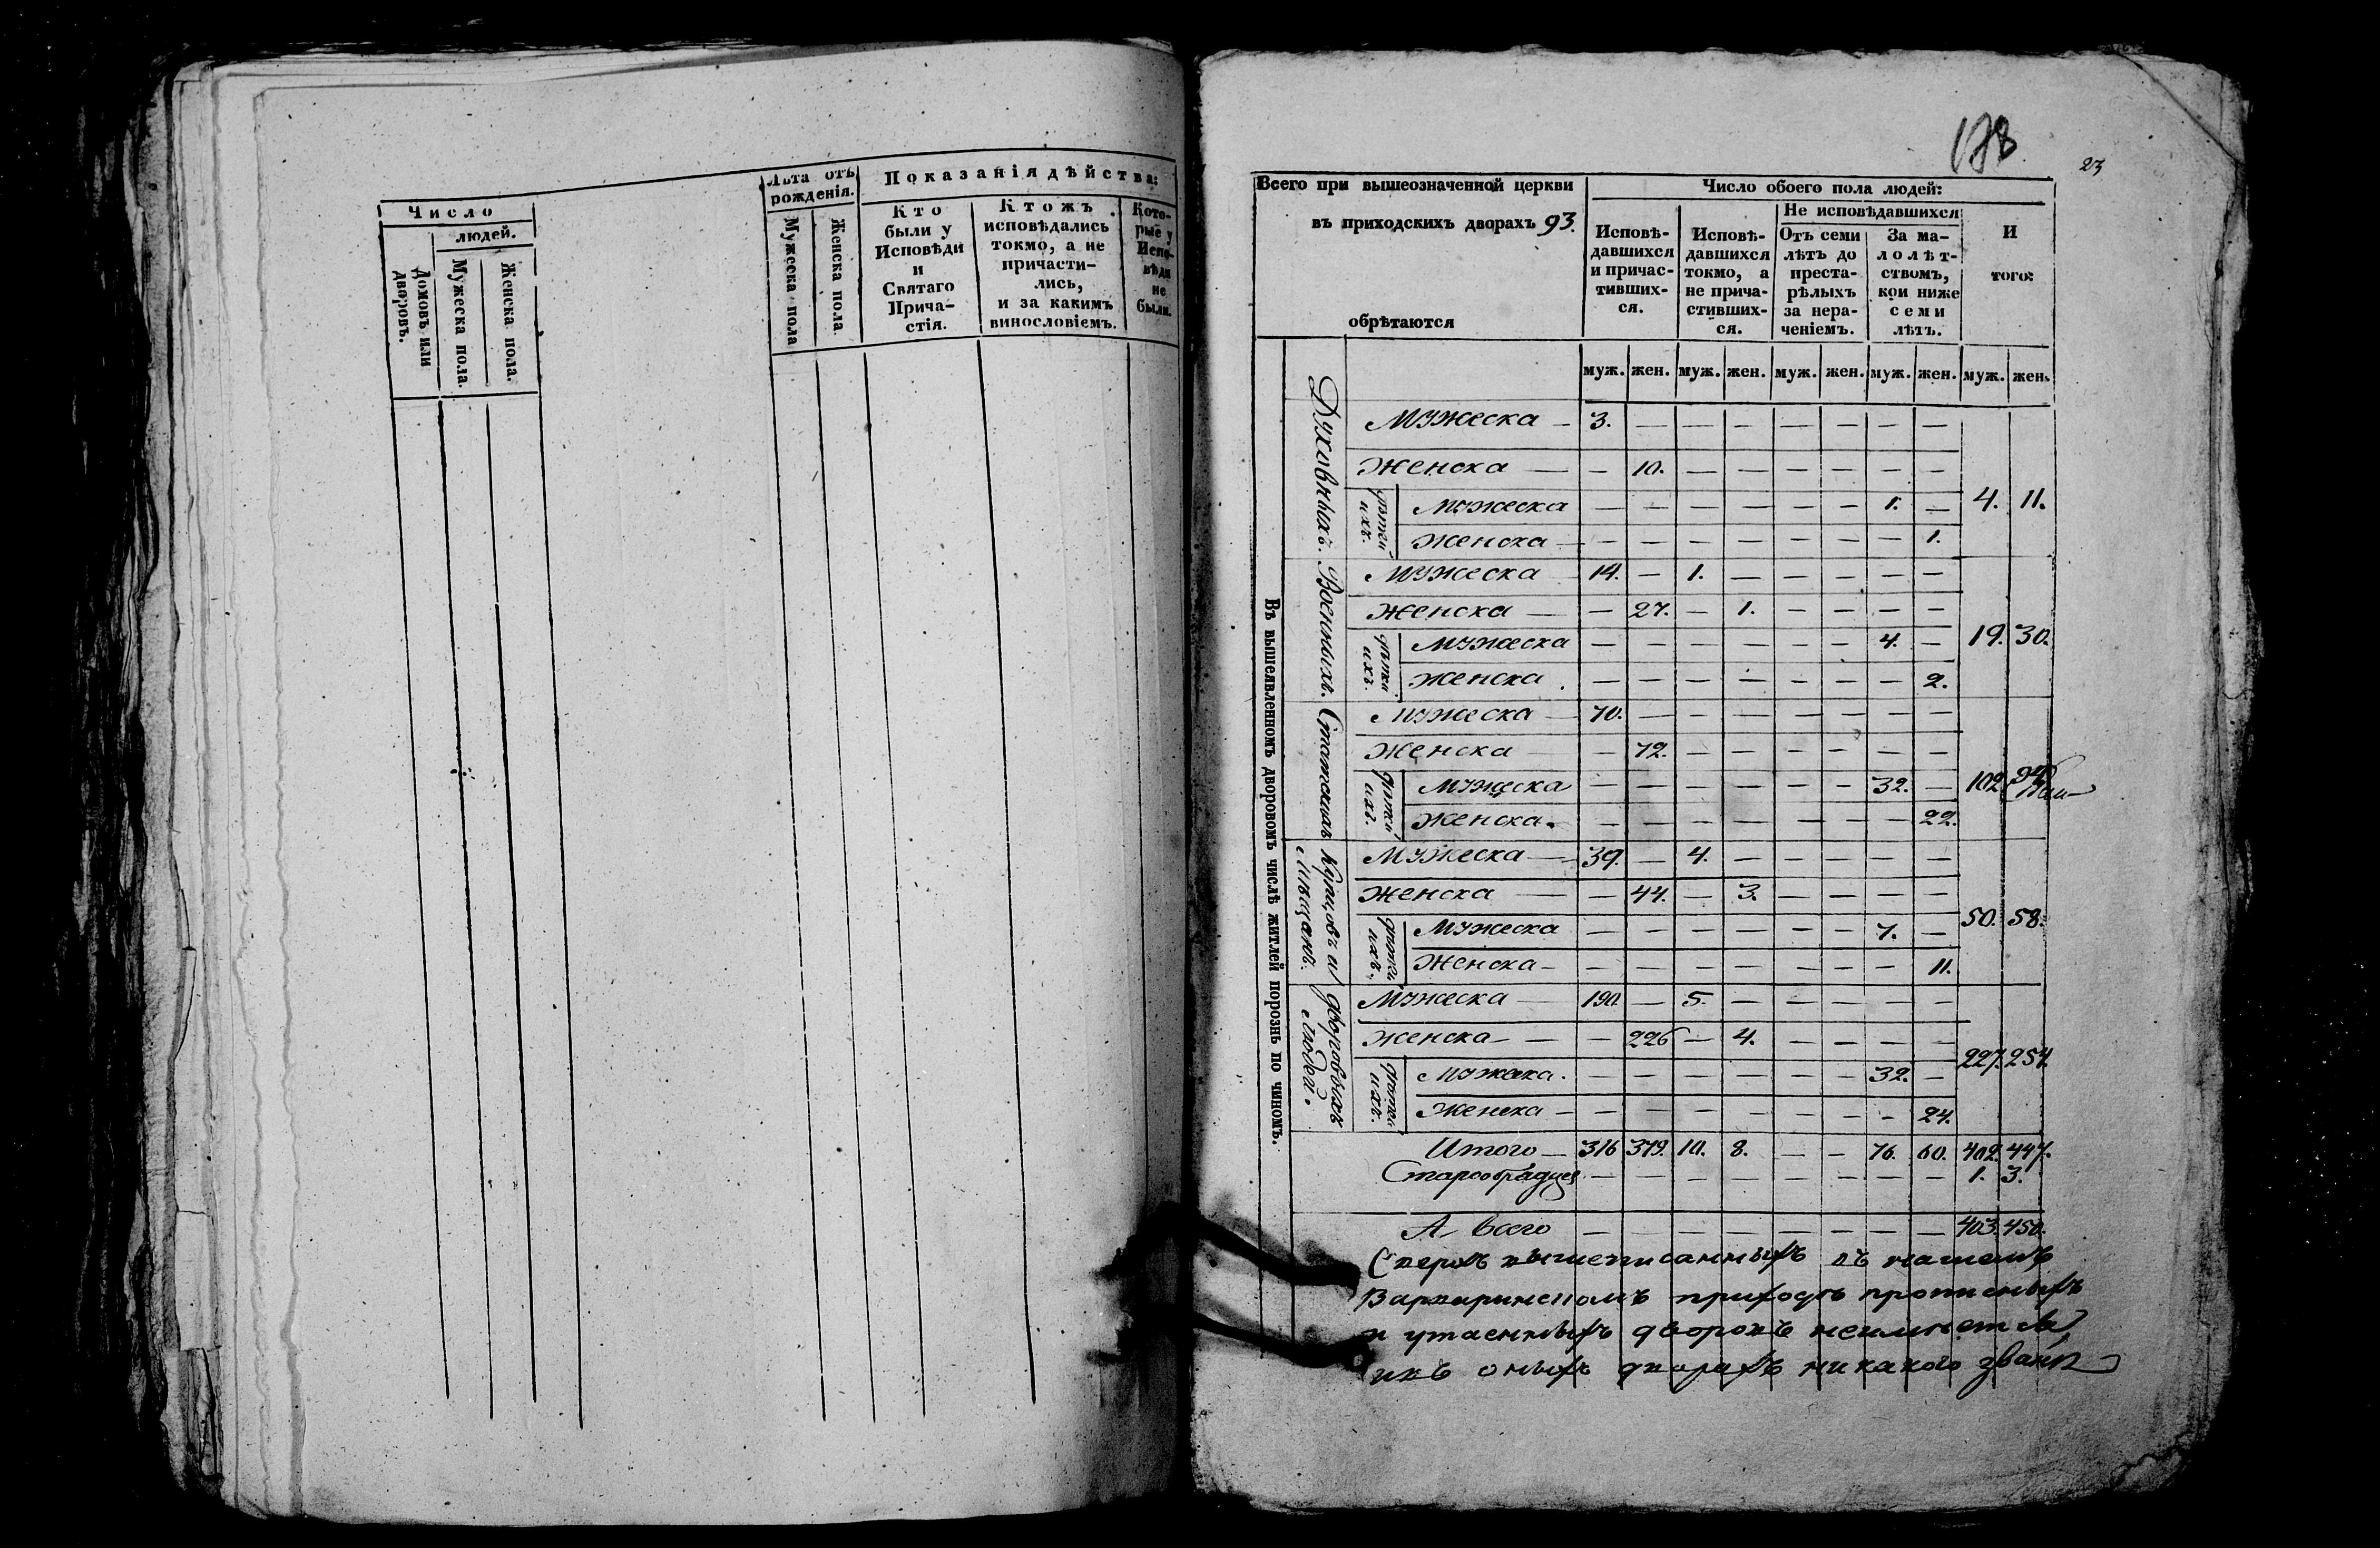 Число
людей.
Домовъ или дворовъ.
Мужеска пола.
Женска пола.
Лѣта отъ
рожденія.
Мужеска пола
Женска пола.
Показанія дѣйства:
Кто
были у
Исповѣди
и
Святаго
Прича-
стія.
Ктожъ
исповѣдались
токмо, а не
причасти-
лись,
и за какимъ
винословіемъ.
Кото-
рые у
Испо-
вѣди
не
были.
23
Всего при вышеозначенной церкви
въ приходскихъ дворахъ 93.
обрѣтаются
Число обоего пола людей:
Исповѣ-
давшихся
и причас-
тивших-
ся.
Исповѣ-
давшихся
токмо, а
не прича-
стивших-
ся.
Не исповѣдавшихся
Отъ семи
лѣтъ до
преста-
рѣлыхъ
за нера-
ченіемъ.
За ма-
лолѣт-
ствомъ,
кои ниже
семи
лѣтъ.
И
того:
муж. жен. муж. жен. муж. жен. муж. жен. муж. жен.
Въ вышеявленномъ дворовомъ числѣ житлей порознь по чиномъ.
Духовныхъ.
Мужеска — 3. — — — — — — —
Женска — — 10. — — — — — —
дѣтей ихъ.
Мужеска — — — — — — 1. —
Женска — — — — — — — 1.
4. 11.
Военныхъ.
Мужеска 14. — 1. — — — — —
Женска — — 27. — 1. — — — —
дѣтей ихъ.
Мужеска — — — — — — 4. —
Женска — — — — — — — 2.
19. 30.
Статскихъ
Мужеска — 70. — — — — — — —
Женска — 72. — — — — — —
дѣтей ихъ.
Мужеска — — — — — — 32. —
Женска — — — — — — — 22.
102. 94
Купцовъ и Мѣщанъ.
Мужеска — 39. — 4. — — — — —
Женска — — 44. — 3. — — — —
дѣтей ихъ.
Мужеска — — — — — — 7. —
Женска — — — — — — — — 11.
50. 58.
дворовыхъ людей.
Мужеска — 190. — 5. — — — — —
Женска — — — 226 — 4. — — — —
дѣтей ихъ.
Мужеска. — — — — — — 32. —
Женска — — — — — — — — 24.
227. 254.
Итого — 316 379. 10. 8. — — 76. 60. 402. 447.
Старообрядцев — — — — — — — — 1. 3.
А всего — — — — — — — — 403. 450.
Сверхъ вышеписанныхъ въ нашемъ
Варваринскомъ приходѣ прописныхъ
и утаенныхъ дворовъ неимѣется
ивъ оныхъ дворахъ никакого званія